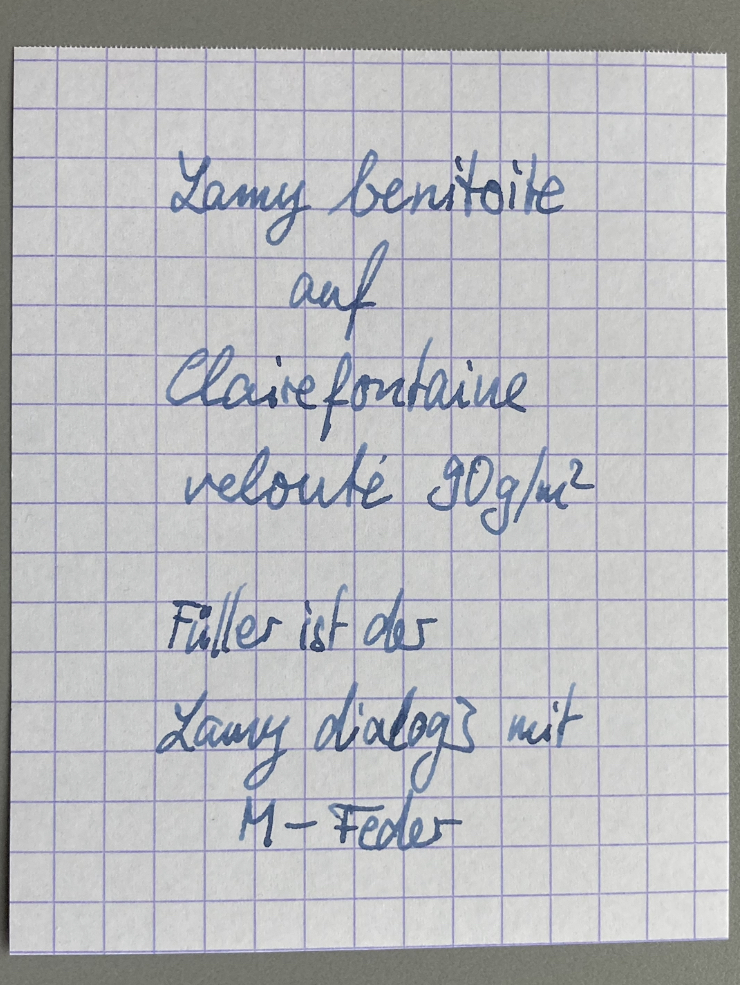 Lamy benitoite
auf
Clairefontaine
velouté 90g/m²
Füller ist der
Lamy dialog3 mit
M-Feder